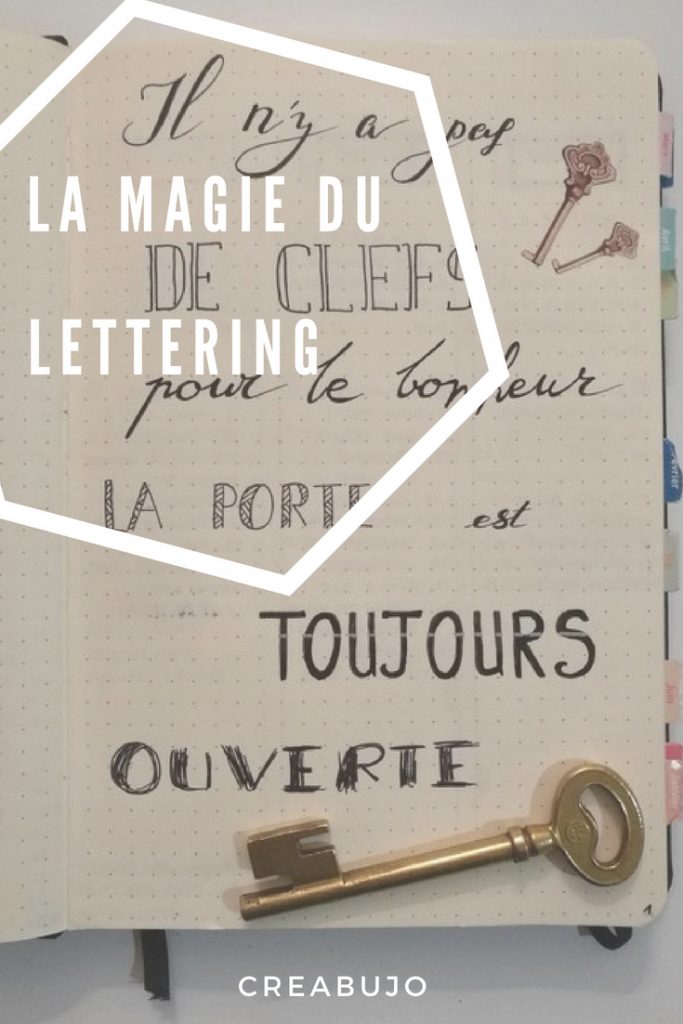 Il n'y a pas
LA MAGIE DU
DE CLEFS
LETTERING
pour le bonheur
LA PORTE est
TOUJOURS
OUVERTE
Avril
Février
Juin
1
CREABUJO